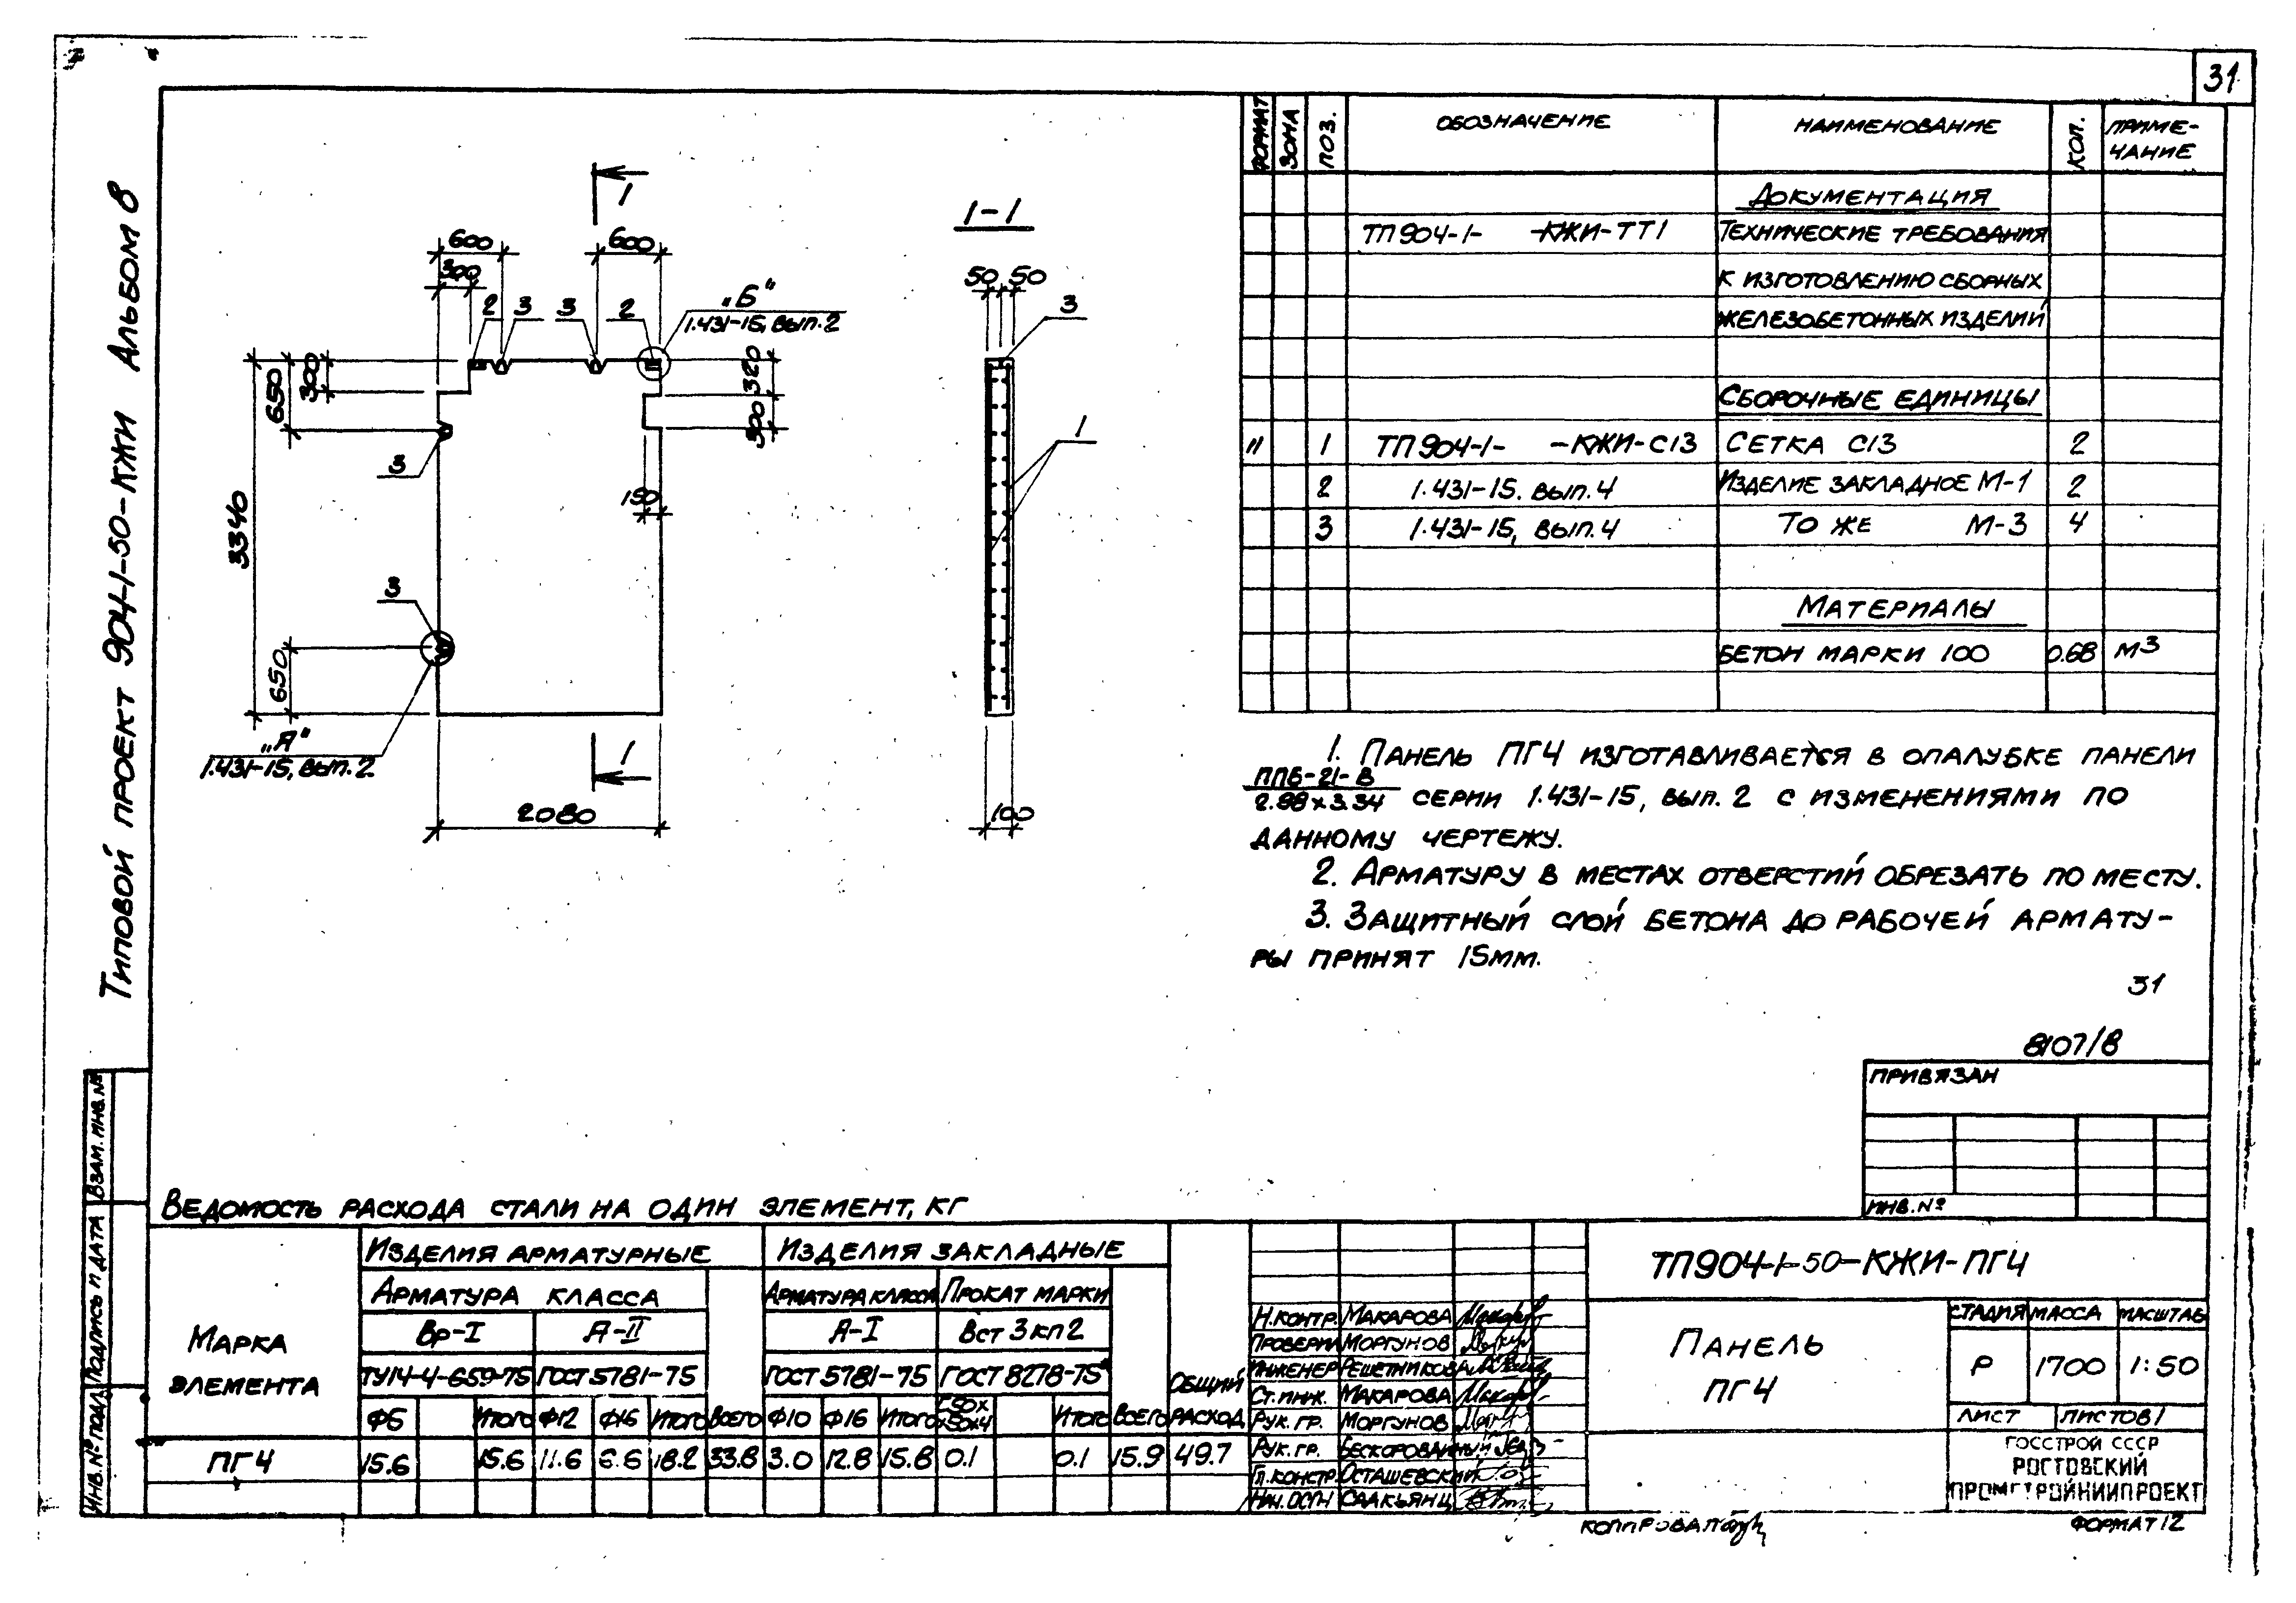 31
Типовой проект 904-1-50-КЖИ Альбом 8
1
1-1
600
600
300
2
3
3
2
„Б“
1.431-15, вып.2
50
50
3
650
300
320
300
1
3
150
3340
3
650
„А“
1.431-15, вып.2
1
2080
100
ФОРМАТ ЗОНА ПОЗ. ОБОЗНАЧЕНИЕ НАИМЕНОВАНИЕ КОЛ. ПРИМЕ-
ЧАНИЕ
ДОКУМЕНТАЦИЯ
ТП904-1- -КЖИ-ТТ1 ТЕХНИЧЕСКИЕ ТРЕБОВАНИЯ
К ИЗГОТОВЛЕНИЮ СБОРНЫХ
ЖЕЛЕЗОБЕТОННЫХ ИЗДЕЛИЙ
СБОРОЧНЫЕ ЕДИНИЦЫ
11 1 ТП904-1- -КЖИ-С13 СЕТКА С13 2
2 1.431-15. вып.4 ИЗДЕЛИЕ ЗАКЛАДНОЕ М-1 2
3 1.431-15, вып.4 ТО ЖЕ М-3 4
МАТЕРИАЛЫ
БЕТОН МАРКИ 100 0.68 М3
1. ПАНЕЛЬ ПГ4 ИЗГОТАВЛИВАЕТСЯ В ОПАЛУБКЕ ПАНЕЛИ
ППБ-21-В
2.98х3.34 СЕРИИ 1.431-15, вып. 2 С ИЗМЕНЕНИЯМИ ПО
ДАННОМУ ЧЕРТЕЖУ.
2. АРМАТУРУ В МЕСТАХ ОТВЕРСТИЙ ОБРЕЗАТЬ ПО МЕСТУ.
3. ЗАЩИТНЫЙ СЛОЙ БЕТОНА ДО РАБОЧЕЙ АРМАТУ-
РЫ ПРИНЯТ 15ММ.
31
8107/8
ПРИВЯЗАН
ИНВ.№
ИНВ.№ ПОДЛ. ПОДПИСЬ И ДАТА ВЗАМ.ИНВ.№
ВЕДОМОСТЬ РАСХОДА СТАЛИ НА ОДИН ЭЛЕМЕНТ, КГ
МАРКА
ЭЛЕМЕНТА
ИЗДЕЛИЯ АРМАТУРНЫЕ ИЗДЕЛИЯ ЗАКЛАДНЫЕ
АРМАТУРА КЛАССА АРМАТУРА КЛАССА ПРОКАТ МАРКИ
Вр-I А-II А-I Вст3кп2
ТУ14-4-659-75 ГОСТ5781-75 ГОСТ5781-75 ГОСТ8278-75*
ОБЩИЙ
РАСХОД
Ф5 ИТОГО Ф12 Ф16 ИТОГО ВСЕГО Ф10 Ф16 ИТОГО Г50х
х50х4 ИТОГО ВСЕГО
ПГ4 15.6 15.6 11.6 6.6 18.2 33.8 3.0 12.8 15.8 0.1 0.1 15.9 49.7
Н.КОНТР. МАКАРОВА
ПРОВЕРИЛ МОРГУНОВ
ИНЖЕНЕР РЕШЕТНИКОВА
СТ.ИНЖ. МАКАРОВА
РУК. ГР. МОРГУНОВ
РУК. ГР. БЕСКОРОВАЙНЫЙ
ГЛ.КОНСТР. ОСТАШЕВСКИЙ
НАЧ.ОСПН СААКЬЯНЦ
ТП904-1-50-КЖИ-ПГ4
ПАНЕЛЬ
ПГ4
СТАДИЯ МАССА МАСШТАБ
Р 1700 1:50
ЛИСТ ЛИСТОВ1
ГОССТРОЙ СССР
РОСТОВСКИЙ
ПРОМСТРОЙНИИПРОЕКТ
КОПИРОВАЛ
ФОРМАТ12